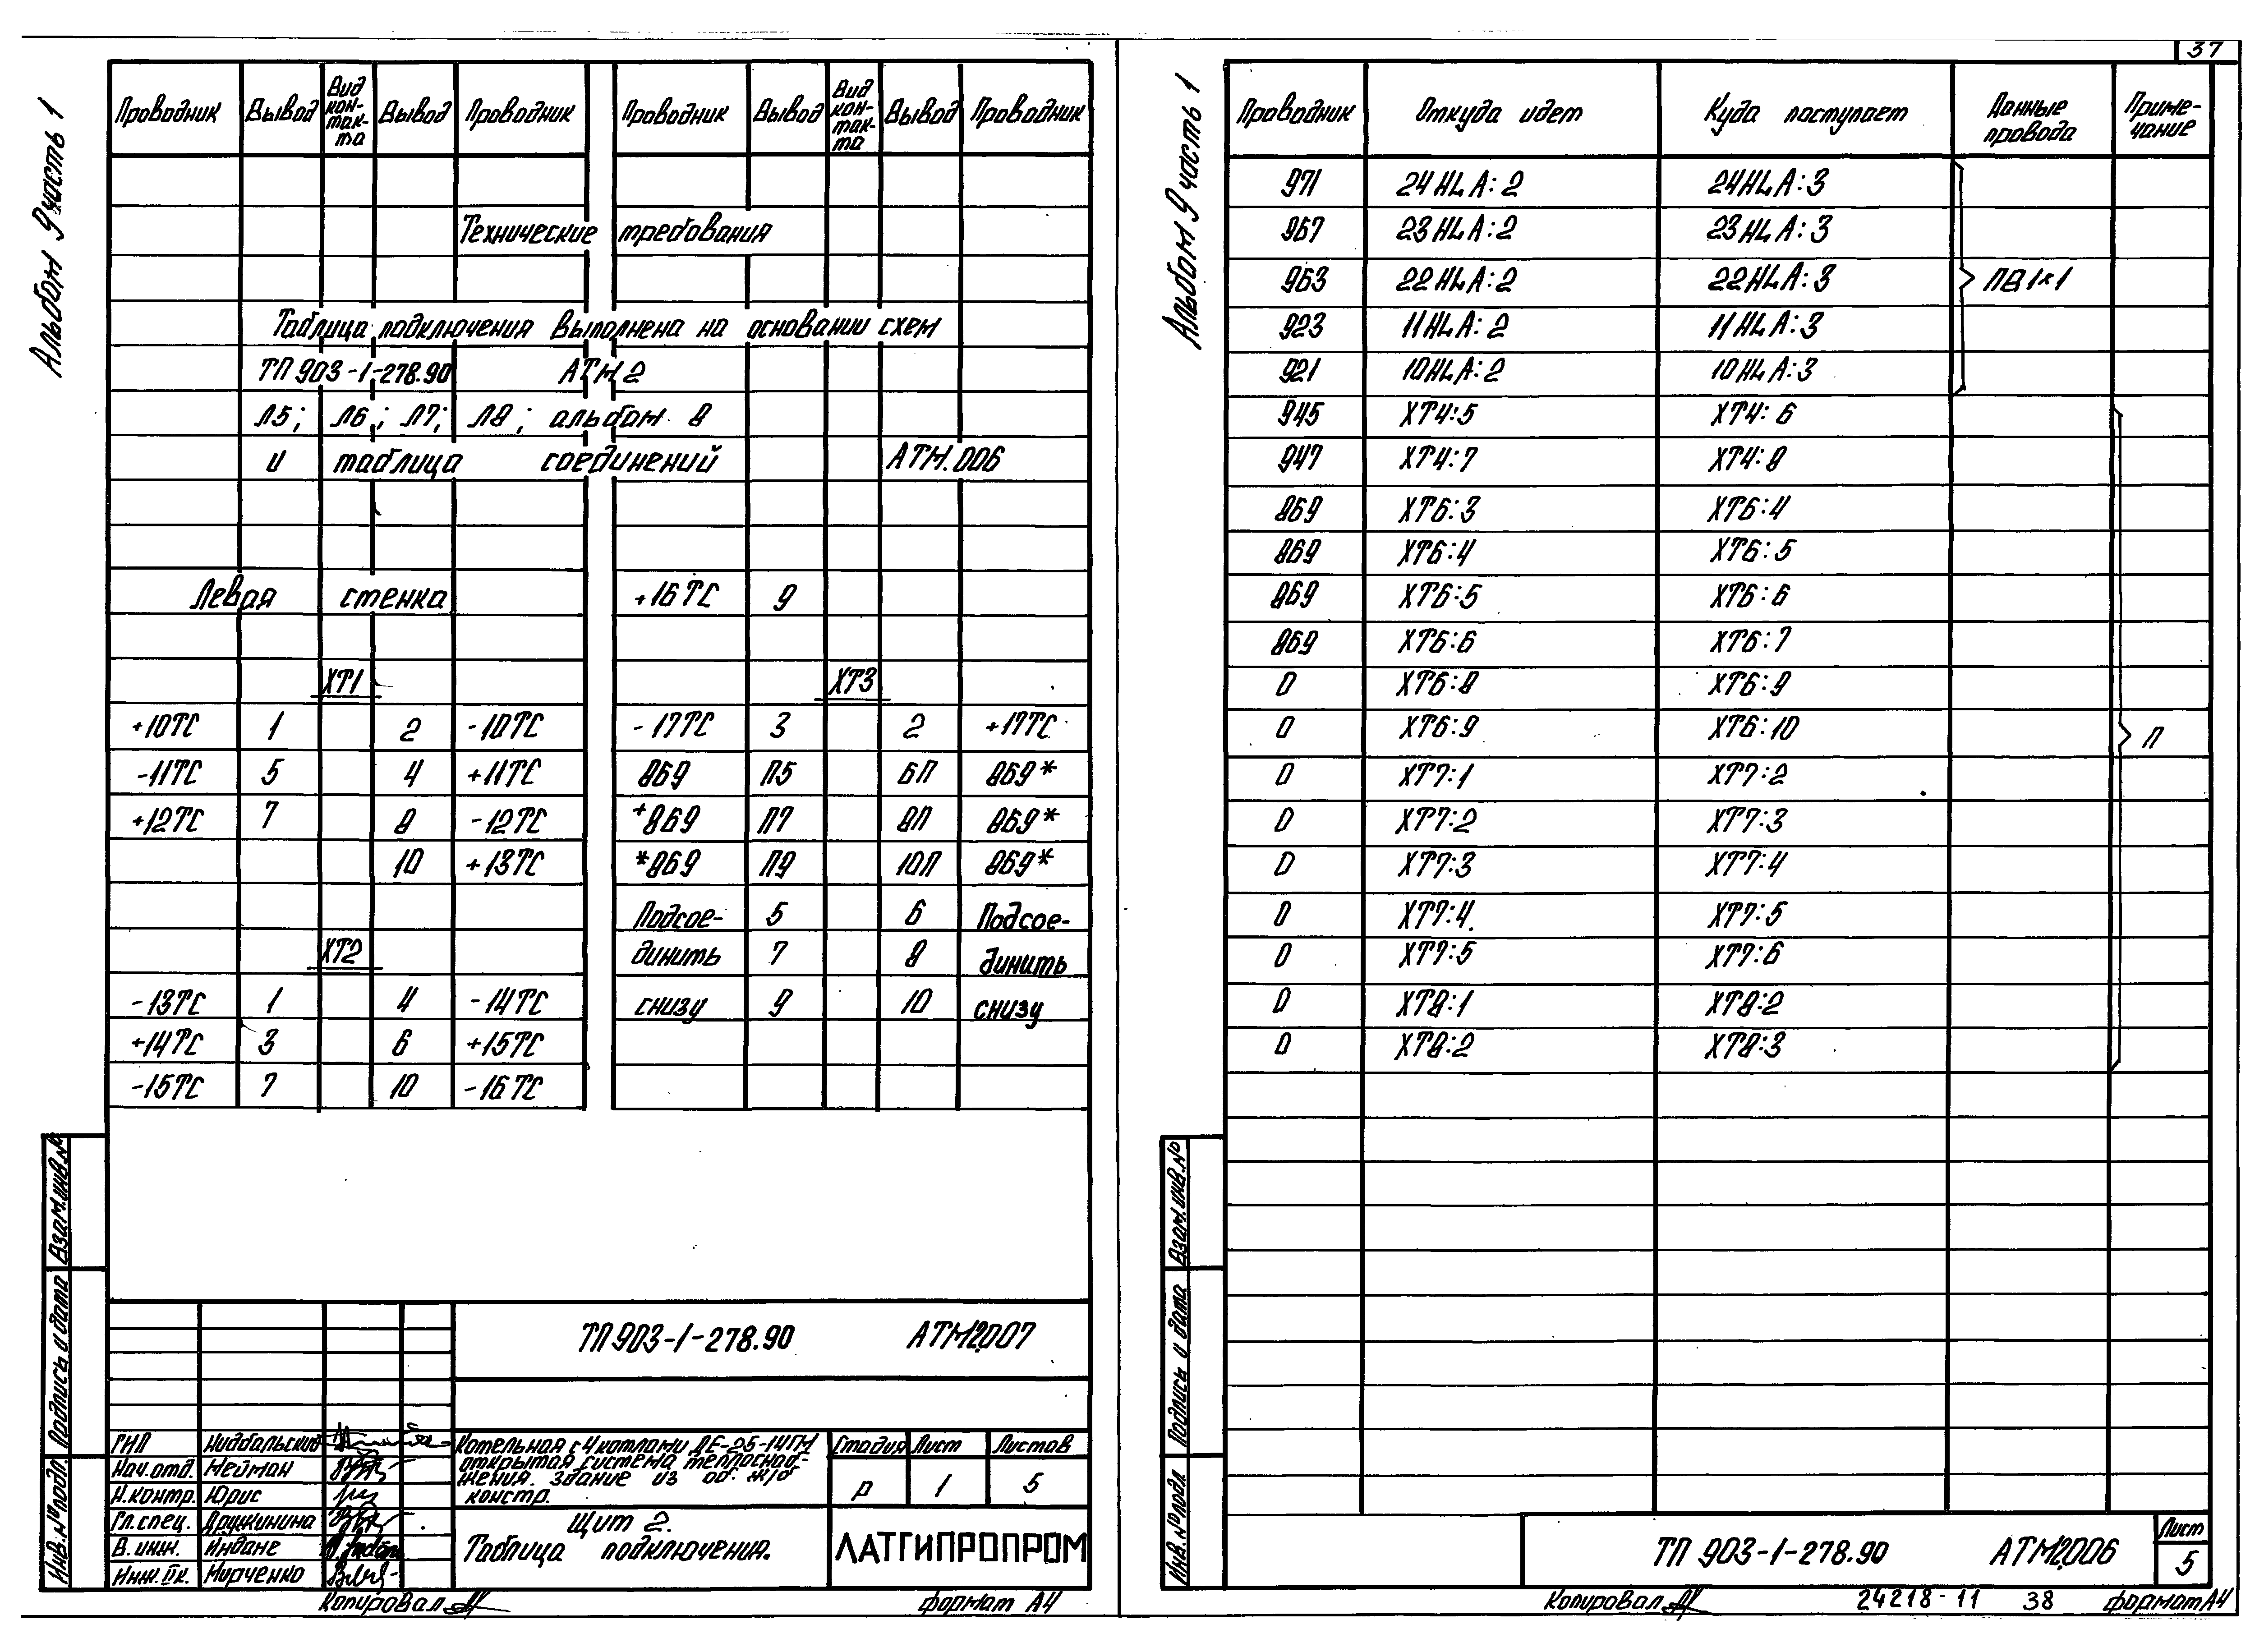 37
Альбом 9 часть 1
Проводник Вывод Вид кон-так-та Вывод Проводник Проводник Вывод Вид кон-так-та Вывод Проводник
Технические требования
Таблица подключения выполнена на основании схем
ТП 903-1-278.90 АТМ2
Л5; Л6; Л7; Л8; альбом 8
и таблица соединений АТМ.006
Левая стенка +16ТС 9
ХТ1 ХТ3
+10ТС 1 2 -10ТС -17ТС 3 2 +17ТС
-11ТС 5 4 +11ТС 869 П5 6П 869*
+12ТС 7 8 -12ТС +869 П7 8П 869*
10 +13ТС *869 П9 10П 869*
Подсое- 5 6 Подсое-
ХТ2 динить 7 8 динить
-13ТС 1 4 -14ТС снизу 9 10 снизу
+14ТС 3 6 +15ТС
-15ТС 7 10 -16ТС
Взам.инв.№
Подпись и дата
Инв.№ подл.
ТП 903-1-278.90 АТМ2.007
ГИП Нидбальский
Нач.отд. Нейман
Н.контр. Юрис
Гл.спец. Дружинина
В. инж. Индане
Инж. IIк. Мирченко
Котельная с 4 котлами ДЕ-25-14ГМ
открытая система теплоснаб-
жения. Здание из об. ж/б
констр.
Стадия Лист Листов
р 1 5
Щит 2.
Таблица подключения.
ЛАТГИПРОПРОМ
Копировал формат А4
Альбом 9 часть 1
Проводник Откуда идет Куда поступает Данные провода Приме-чание
971 24HLA:2 24HLA:3
967 23HLA:2 23HLA:3
963 22HLA:2 22HLA:3 ПВ 1×1
923 11HLA:2 11HLA:3
921 10HLA:2 10HLA:3
945 ХТ4:5 ХТ4:6
947 ХТ4:7 ХТ4:8
869 ХТ6:3 ХТ6:4
869 ХТ6:4 ХТ6:5
869 ХТ6:5 ХТ6:6
869 ХТ6:6 ХТ6:7
0 ХТ6:8 ХТ6:9
0 ХТ6:9 ХТ6:10 П
0 ХТ7:1 ХТ7:2
0 ХТ7:2 ХТ7:3
0 ХТ7:3 ХТ7:4
0 ХТ7:4 ХТ7:5
0 ХТ7:5 ХТ7:6
0 ХТ8:1 ХТ8:2
0 ХТ8:2 ХТ8:3
Взам.инв.№
Подпись и дата
Инв.№ подл.
ТП 903-1-278.90 АТМ2.006
Лист
5
Копировал 24218-11 38 формат А4